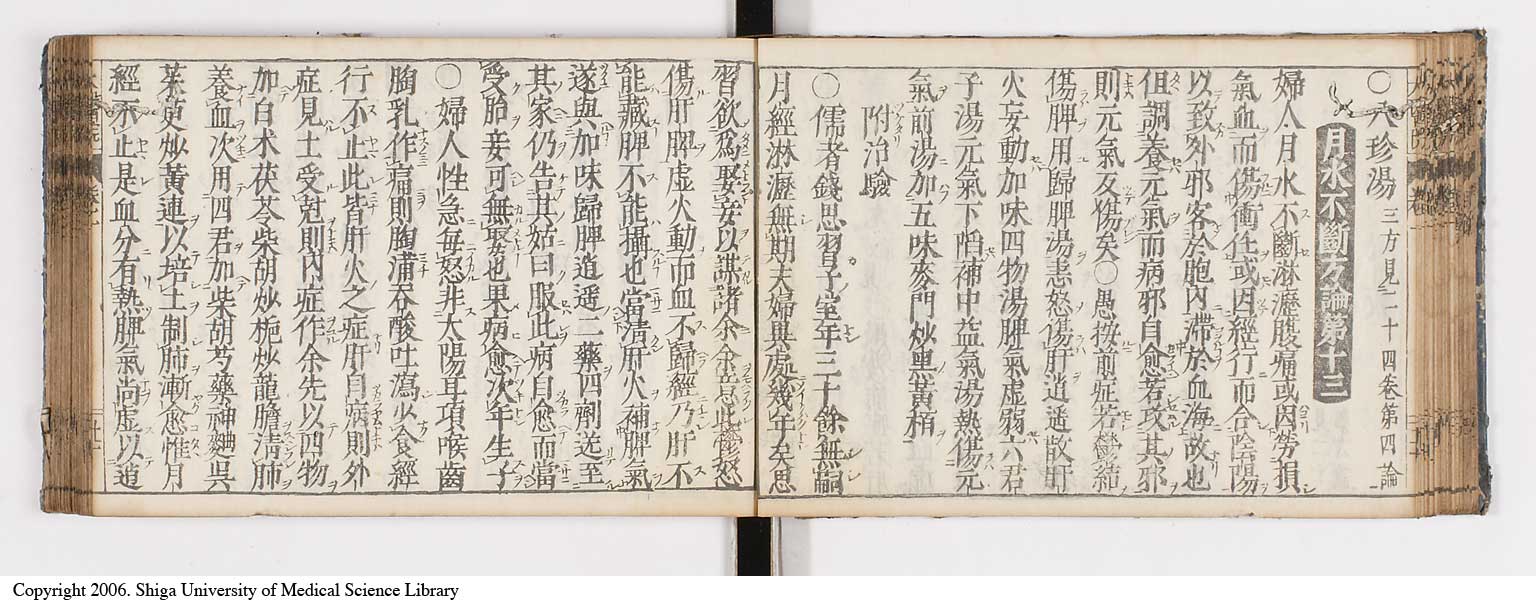 〇八珍湯三方見二十四卷第四論
月水不斷方論第十三
婦人月水不斷淋瀝腹痛或因勞損
氣血而傷衝任或因經行而合陰陽
以致外邪客於胞內滯於血海故也
但調養元氣而病邪自愈若攻其邪
則元氣反傷矣〇愚按前症若鬱結
傷脾用歸脾湯恚怒傷肝逍遥散肝
火妄動加味四物湯脾氣虛弱六君
子湯元氣下陷補中益氣湯熱傷元
氣前湯加五味麥門炒黒黃栢
附治驗
〇儒者錢思習子室年三十餘無嗣
月經淋瀝無期夫婦異處幾年矣思
習欲爲娶妾以謀諸余余意此鬱怒
傷肝脾虛火動而血不歸經乃肝不
能藏脾不能攝也當清肝火補脾氣
遂與加味歸脾逍遥二藥四劑送至
其家仍告其姑曰服此病自愈而當
受胎妾可無娶也果病愈次年生子
〇婦人性急每怒非太陽耳項喉齒
胸乳作痛則胸滿吞酸吐瀉少食經
行不止此皆肝火之症肝自病則外
症見土受尅則內症作余先以四物
加白术茯苓柴胡炒梔炒龍膽清肺
養血次用四君加柴胡芍藥神麯吳
茱萸炒黃連以培土制肺漸愈惟月
經不止是血分有熱脾氣尚虛以逍
Copyright 2006. Shiga University of Medical Science Library